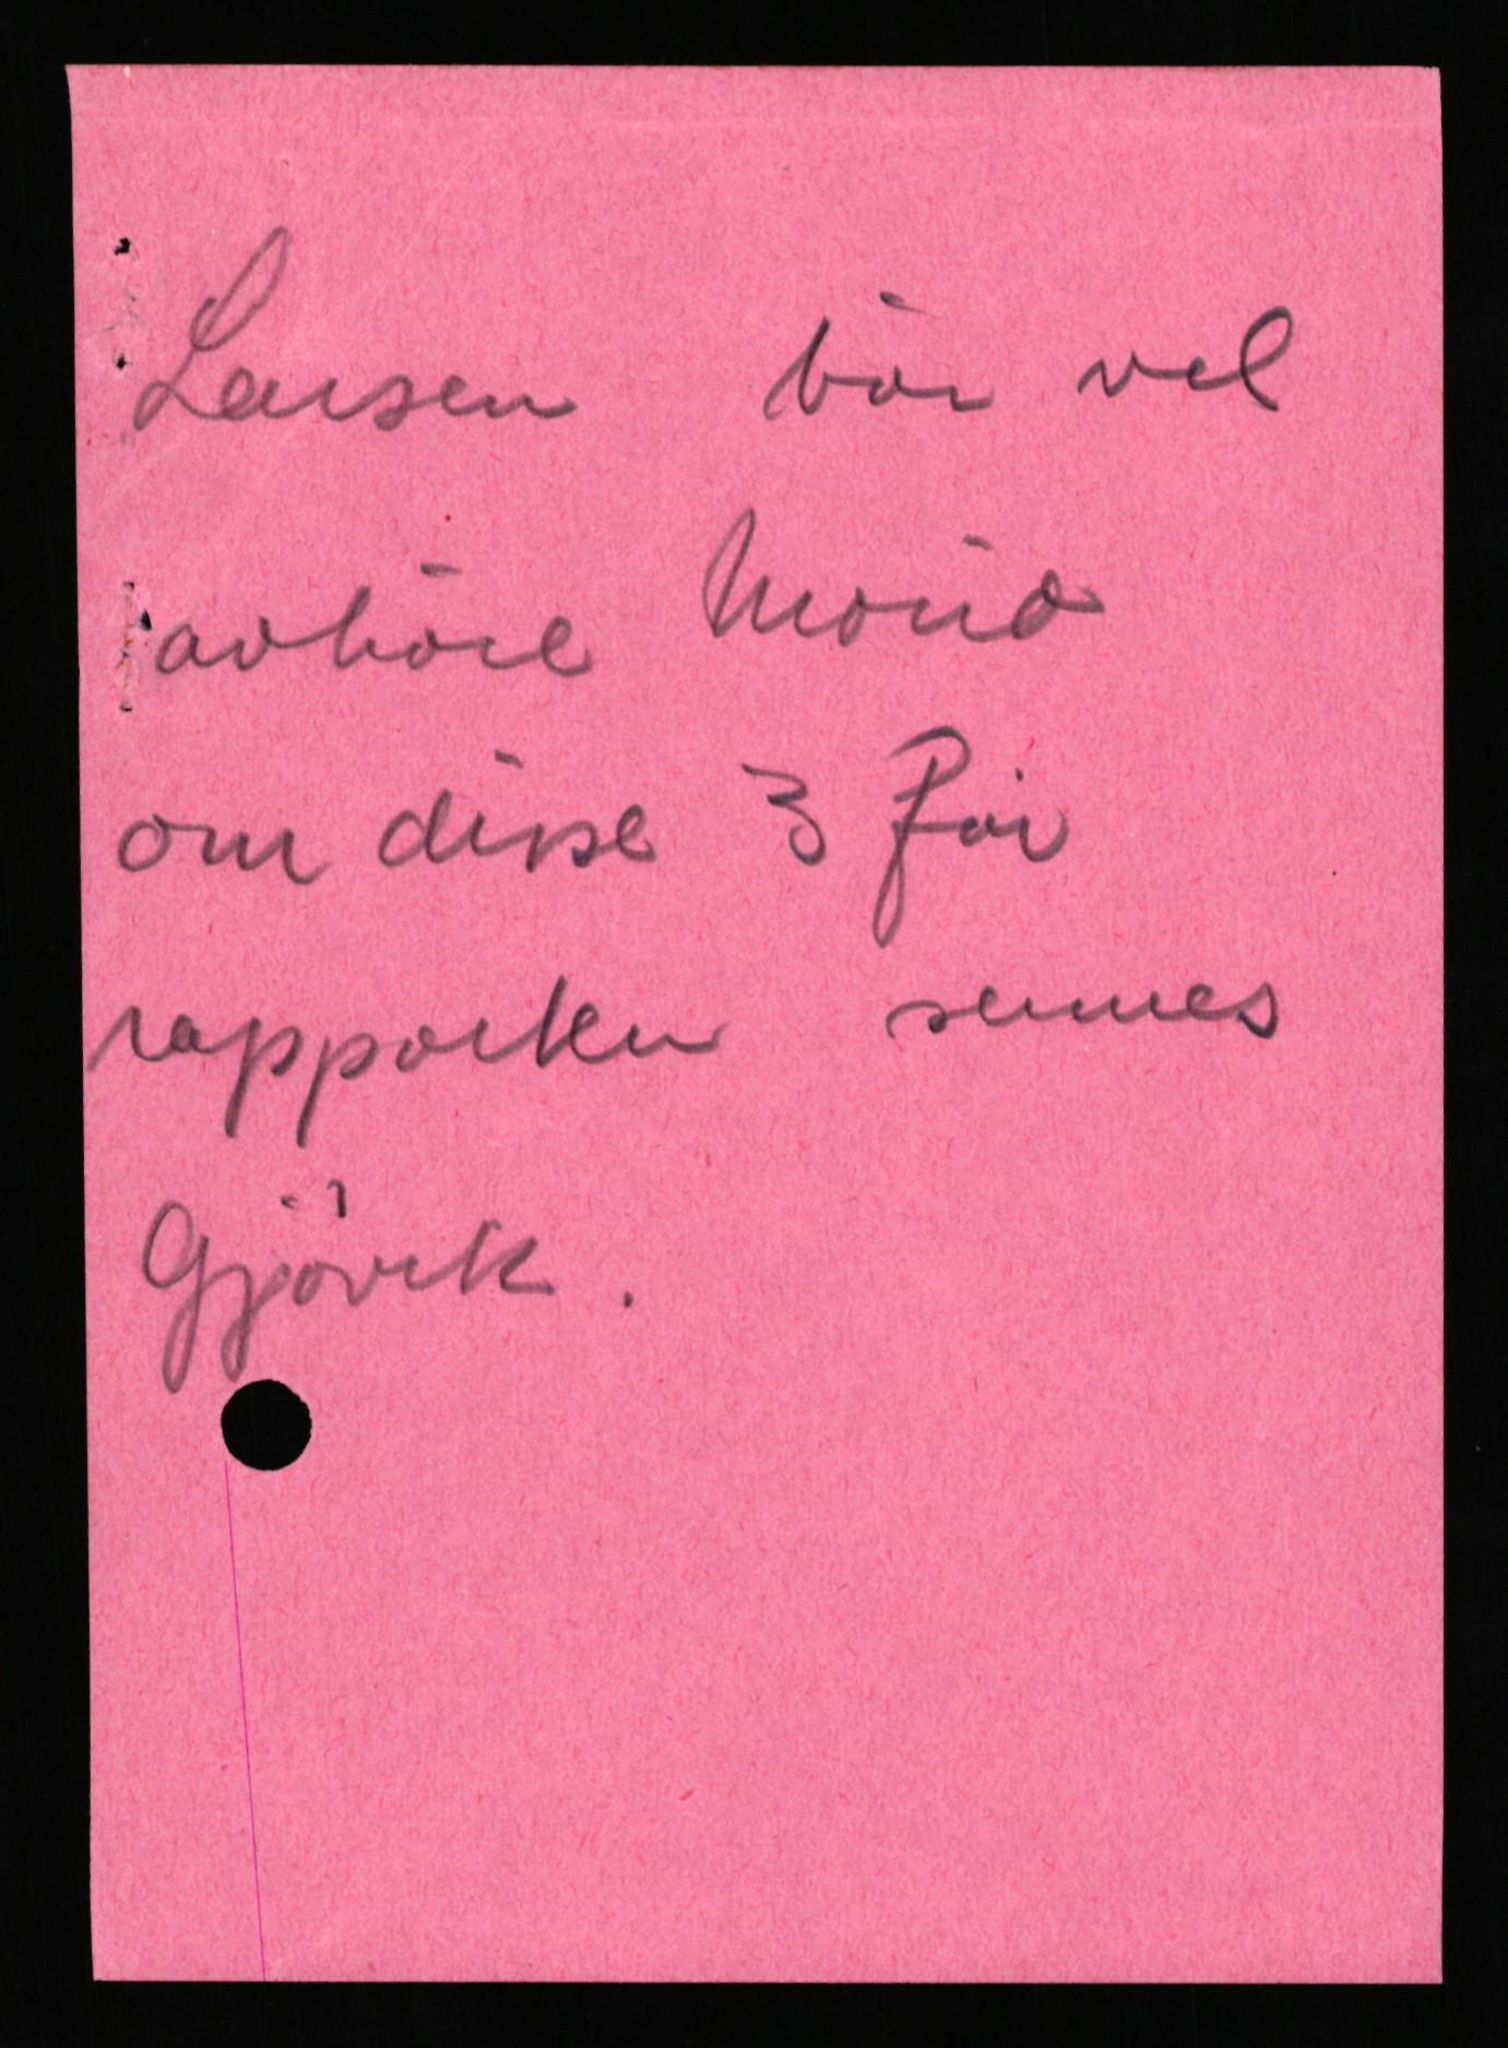 Larsen bör vel
avhöre Moric
om disse 3 før
rapporten sennes
Gjövik.